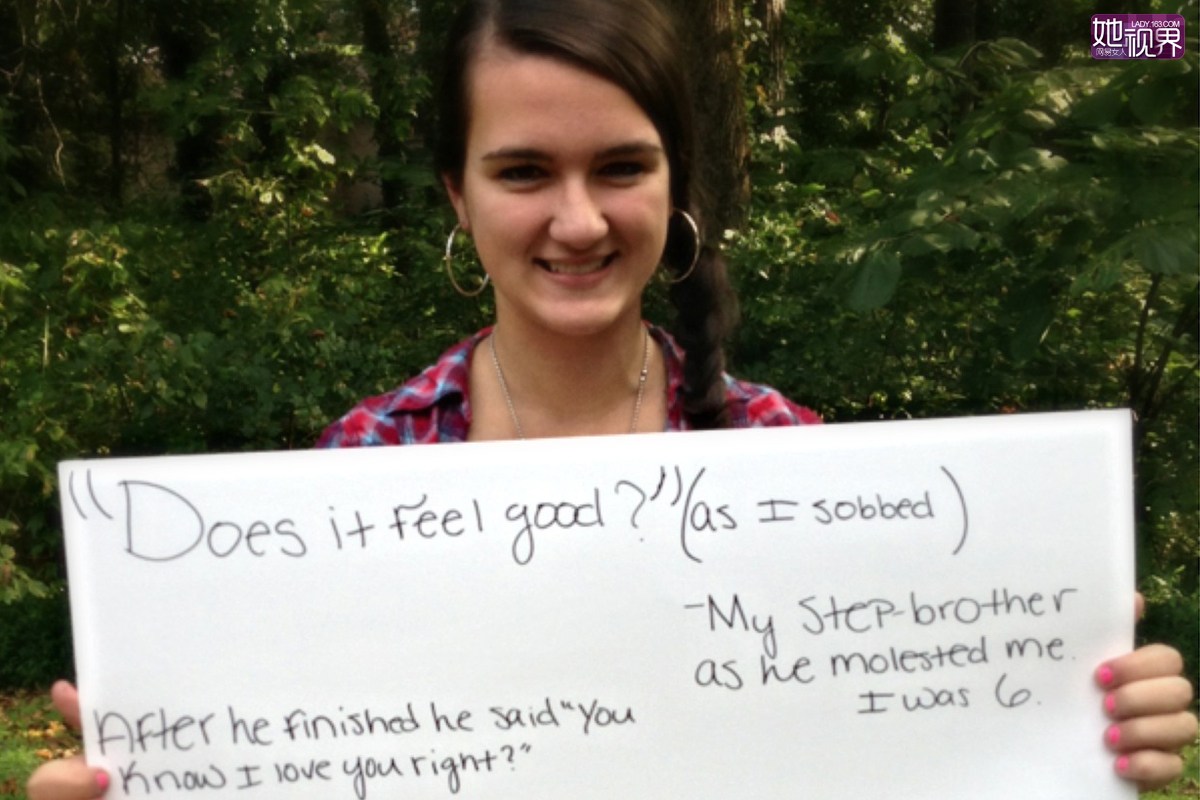 她视界
LADY.163.COM
网易女人
"Does it feel good?" (as I sobbed)
-My Step-brother
as he molested me.
I was 6.
After he finished he said "You
know I love you right?"